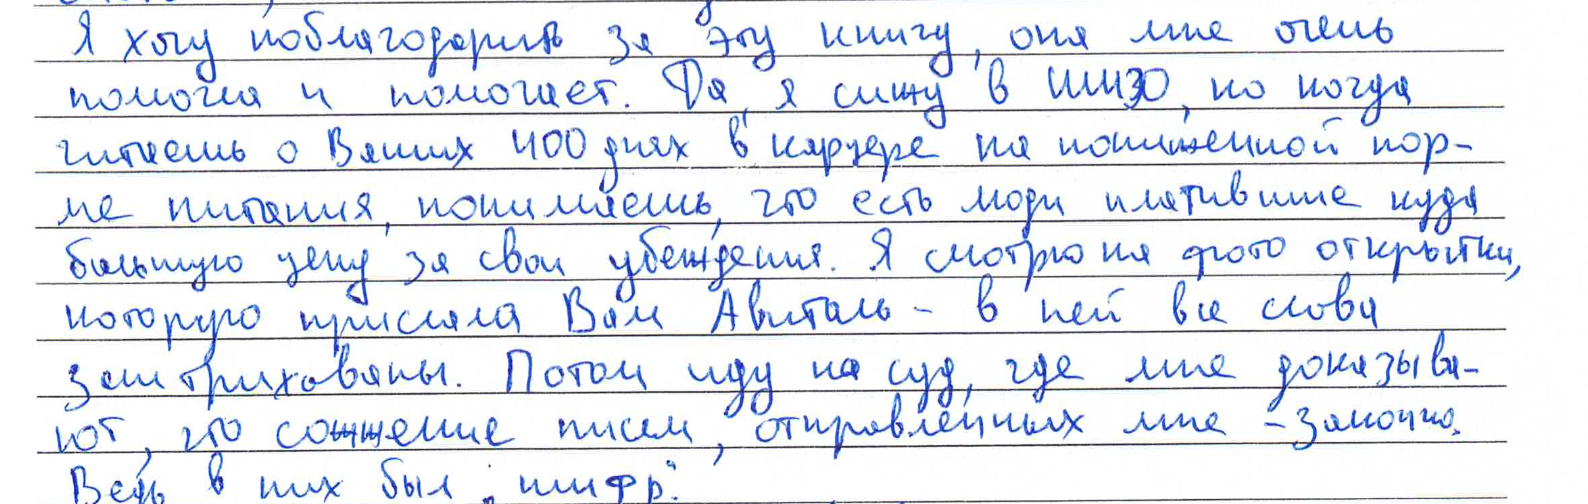 Я хочу поблагодарить за эту книгу, она мне очень
помогла и помогает. Да, я сижу в ШИЗО, но когда
читаешь о Ваших 400 днях в карцере на пониженной нор-
ме питания, понимаешь, что есть люди платившие куда
большую цену за свои убеждения. Я смотрю на фото открытки,
которую присла­ла Вам Авиталь - в ней все слова
заштрихованы. Потом иду на суд, где мне доказыва-
ют, что сожжение писем, отправленных мне - законно.
Ведь в них был "шифр".